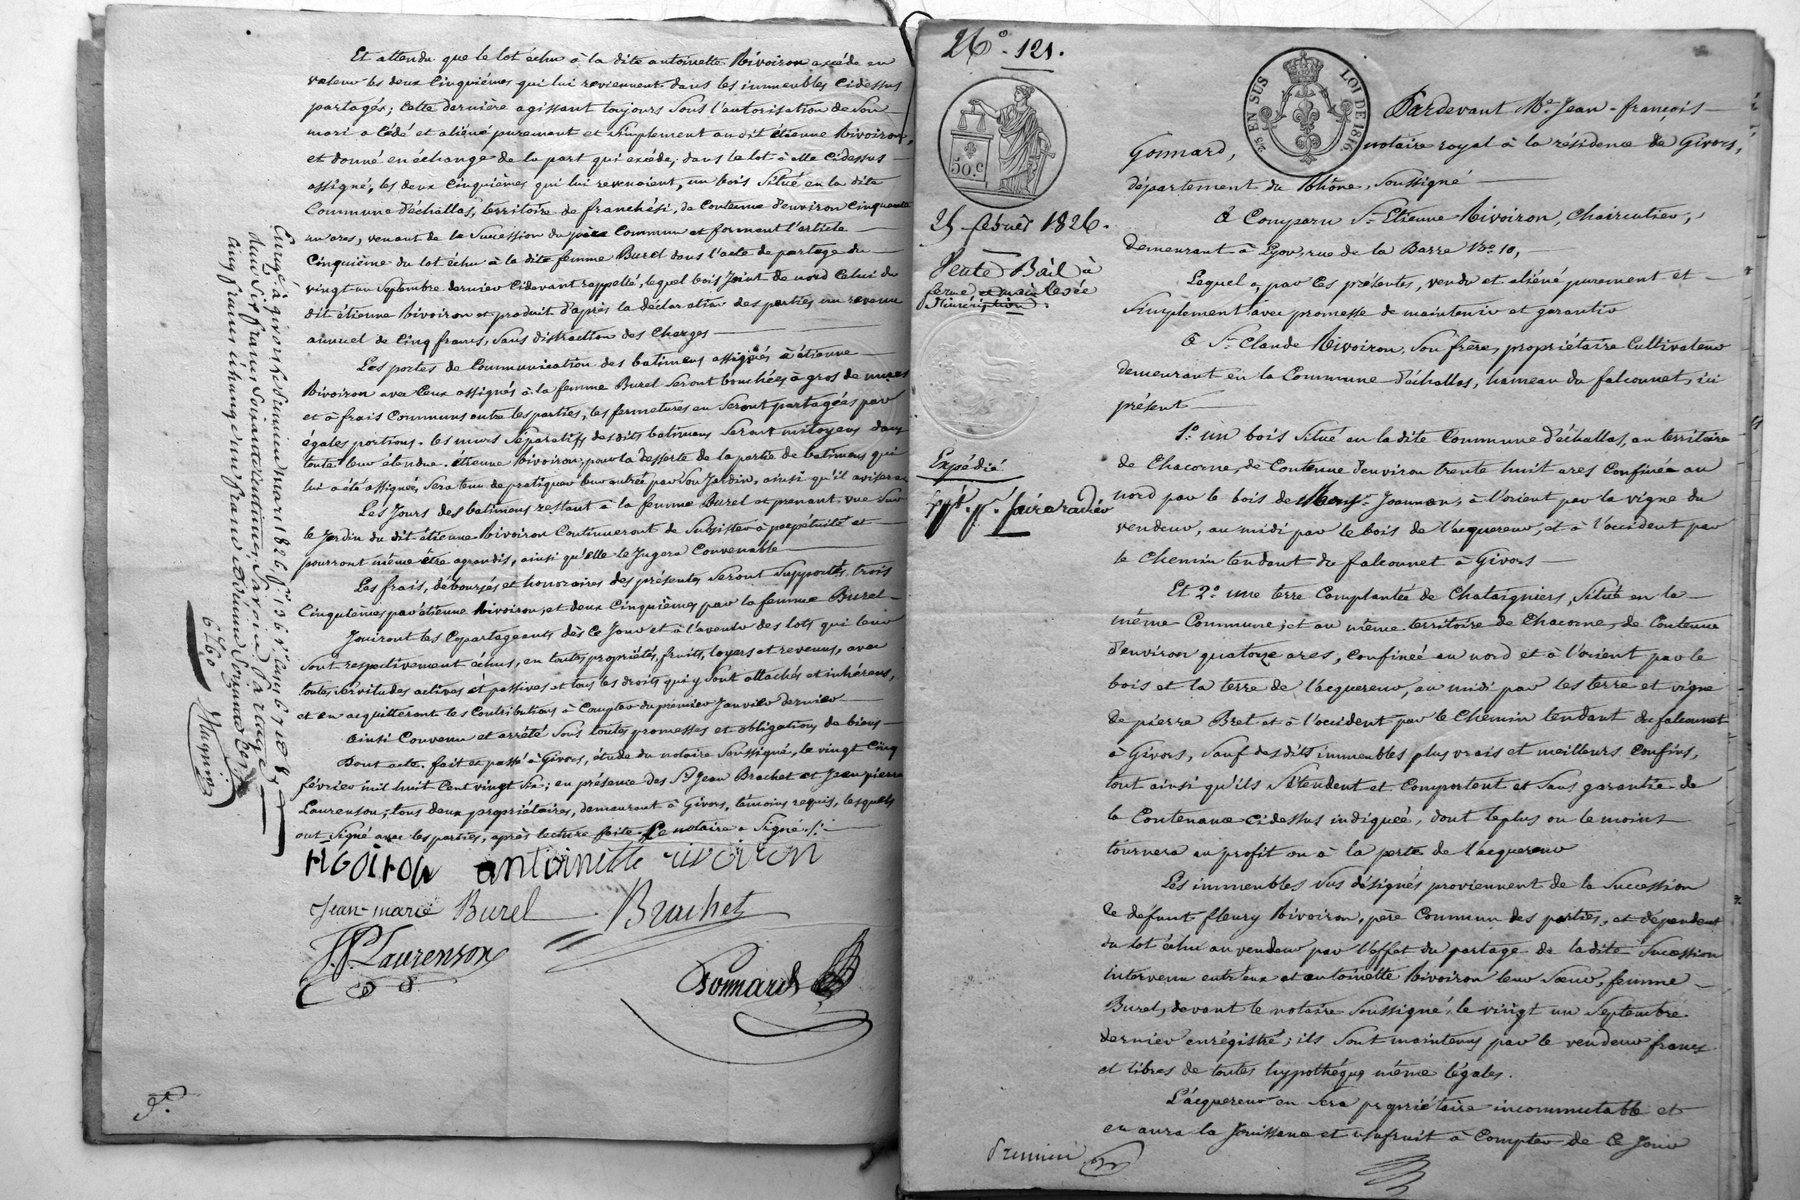 Et attendu que le lot échu à la dite antoinette Rivoiron excède en
valeur les deux Cinquièmes qui lui reviennent dans les immeubles Cidessus
partagés; cette dernière agissant toujours Sous l'autorisation de Son
mari a Cédé et aliéné purement et Simplement au dit étienne Rivoiron,
et donné en échange de la part qui excéde, dans le lot à elle Cidessus
assigné, les deux Cinquièmes qui lui revenoient, un bois Situé en la dite
Commune d'échallas, territoire de franchési, de Contenue d'environ Cinquante
un ares, venant de la Succession du père Commun et formant l'article
Cinquième du lot échu à la dite femme Burel dans l'acte de partage du
vingt un Septembre dernier Cidevant rappellé, lequel bois Joint de nord Celui du
dit étienne Rivoiron et produit d'après la déclaration des parties un revenu
annuel de Cinq francs, Sans distraction des Charges
Les portes de Communication des batimens assignés à étienne
Rivoiron avec Ceux assignés à la femme Burel Seront bouchées à gros de murs
et à frais Communs entre les parties, les fermetures en Seront partagées par
égales portions. les murs Séparatifs desdits batimens Seront mitoyens dans
toute leur étendue. étienne Rivoiron, pour la desserte de la partie de batimens qui
lui a été assignée, Sera tenu de pratiquer leur entrée par Son Jardin, ainsi qu'il avisera
Les Jours des batimens restant à la femme Burel et prenant vue Sur
le Jardin du dit étienne Rivoiron Continueront de Subsister à perpétuité et
pourront même être agrandis, ainsi qu'elle le Jugera Convenable
Les frais, déboursés et honoraires des présentes Seront Supportés, trois
Cinquièmes par étienne Rivoiron, et deux Cinquièmes par la femme Burel
Jouiront les Copartageants dès Ce Jour et à l'avenir des lots qui leur
Sont respectivement échus, en toutes propriétés, fruits, loyers et revenus, avec
toutes Servitudes actives et passives et tous les droits qui y Sont attachés et inhérens,
et en acquitteront les Contributions à Compter du premier Janvier dernier
ainsi Convenu et arrêté Sous toutes promesses et obligations de biens
Dont acte. fait et passé à Givors, étude du notaire Soussigné, le vingt Cinq
février mil huit Cent vingt Six; en présence des Srs Jean Brachet et Jean pierre
Laurenson, tous deux propriétaires, demeurant à Givors, témoins requis, lesquels
ont Signé avec les parties, après lecture faite. Le notaire a Signé.
rivoiron antoinette rivoiron
Jean-marie Burel Brachet
J.P. Laurenson
Gonnard
26° 121.
50.C
25 EN SUS LOI DE 1816.
25 février 1826.
Vente Bail à
Expédié
Pardevant Me. Jean-françois
Gonnard, notaire royal à la résidence de Givors,
département du Rhône, Soussigné
A Comparu Sr. Etienne Rivoiron, Chaircutier,
demeurant à Lyon, rue de la Barre No. 10,
Lequel a, par Ces présentes, vendu et aliéné purement et
Simplement avec promesse de maintenir et garantir
A Sr. Claude Rivoiron, Son frère, propriétaire Cultivateur
demeurant en la Commune d'échallas, hameau du falconnet, ici
présent
1°. un bois Situé en la dite Commune d'échallas, au territoire
de Chacorne, de Contenue d'environ trente huit ares Confinée au
nord par le bois de Monsr. Jeannon, à l'orient par la vigne du
vendeur, au midi par le bois de l'acquereur, et à l'occident par
le Chemin tendant du falconnet à Givors
Et 2°. une terre Complantée de Chataigniers, Située en la
même Commune, et au même territoire de Chacorne, de Contenue
d'environ quatorze ares, Confinée au nord et à l'orient par le
bois et la terre de l'acquereur, au midi par les terre et vigne
de pierre Bret et à l'occident par le Chemin tendant du falconnet
à Givors, Sauf desdits immeubles plus vrais et meilleurs Confins,
tout ainsi qu'ils S'étendent et Comportent et Sans garantie de
la Contenance Cidessus indiquée, dont le plus ou le moins
tournera au profit ou à la perte de l'acquereur
Les immeubles Sus désignés proviennent de la Succession
de défunt fleury Rivoiron, père Commun des parties, et dépendent
du lot échu au vendeur par l'effet du partage de la dite Succession
intervenu entr'eux et antoinette Rivoiron leur Sœur, femme
Burel, devant le notaire Soussigné, le vingt un Septembre
dernier enrégistré; ils Sont maintenus par le vendeur francs
et libres de toutes hypothèques même légales.
L'acquereur en Sera propriétaire incommutable et
en aura la Jouissance et usufruit à Compter de Ce Jour